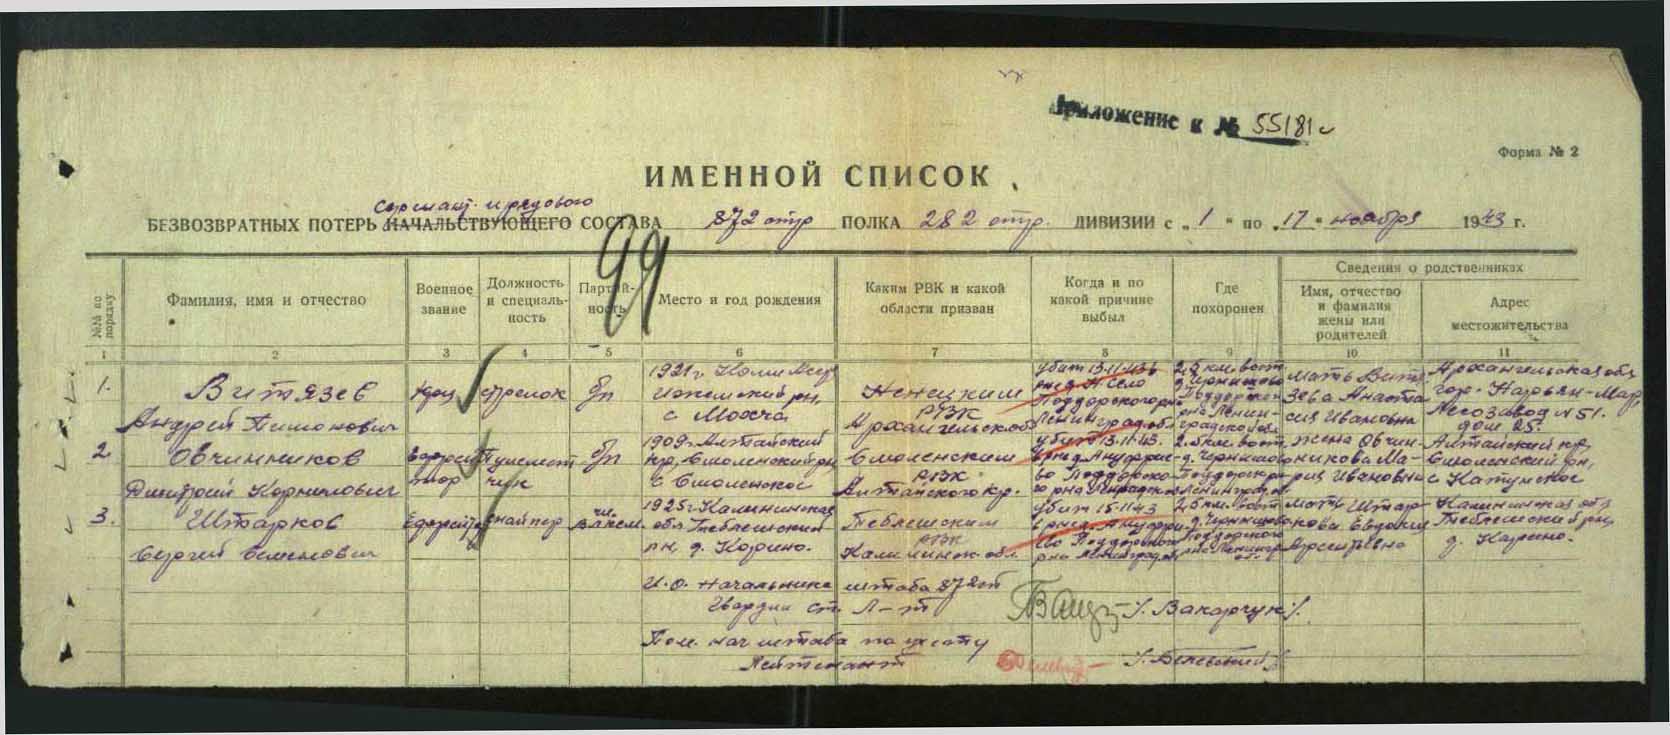 Приложение к № 55181с
Форма № 2
ИМЕННОЙ СПИСОК
сержант. и рядового
БЕЗВОЗВРАТНЫХ ПОТЕРЬ НАЧАЛЬСТВУЮЩЕГО СОСТАВА 872 стр ПОЛКА 282 стр. ДИВИЗИИ с „1" по „17" ноября 1943 г.
99
№№ по порядку
Фамилия, имя и отчество
Военное звание
Должность и специальность
Партийность
Место и год рождения
Каким РВК и какой области призван
Когда и по какой причине выбыл
Где похоронен
Сведения о родственниках
Имя, отчество и фамилия жены или родителей
Адрес местожительства
1 2 3 4 5 6 7 8 9 10 11
1.
Витязев
Андрей Тимонович
стрелок
б/п
1921 г. Коми АССР
Ижемский р-н,
с Мохча
Ненецким
РВК
Архангельск обл
убит 13.11.43 в
село
Поддорского р-на
Ленинград. обл
2,5 км. вост
д. Чернышово
Поддорского
р-на Ленин-
градской обл
мать Витя-
зева Анаста-
сия Ивановна
Архангельская обл
гор. Нарьян-Мар
Лесозавод № 51.
дом 25.
2.
Овчинников
Дмитрий Корнилович
Ефрейтор
Пулеметчик
б/п
1909 г. Алтайский
кр, Смоленский р-н,
с Смоленское
Смоленским
РВК
Алтайского кр.
убит 13.11.43.
Поддорско-
го р-на
2.5 км. вост
д. Чернышово
Поддорск р-на
Ленинград.
жена Овчин-
никова Ма-
рия Ивановна
Алтайский кр,
Смоленский р-н,
с Катунское
3.
Штарков
Сергей Семенович
Ефрейтор
снайпер
чл. ВЛКСМ.
1925 г. Калининская
обл. Теблешский
р-н, д. Корино.
Теблешским
РВК
Калининск обл.
убит 15.11.43
Поддорского
р-на Ленинград.
2,5 км. вост
д. Чернышово
Поддорского
р-на Ленингр.
об.
мать Штар-
кова Евдокия
Арсентьевна
Калининская обл
Теблешский р-н,
д. Карино.
И.О. Начальника штаба 872 сп
Гвардии ст. Л-т /. Вакарчук /.
Пом. нач штаба по учету
Лейтенант